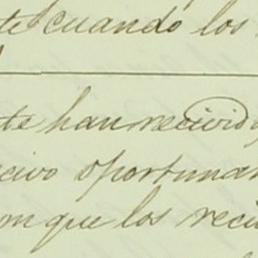 te cuando los
te han recivido
civo oportunam
on que los reciv